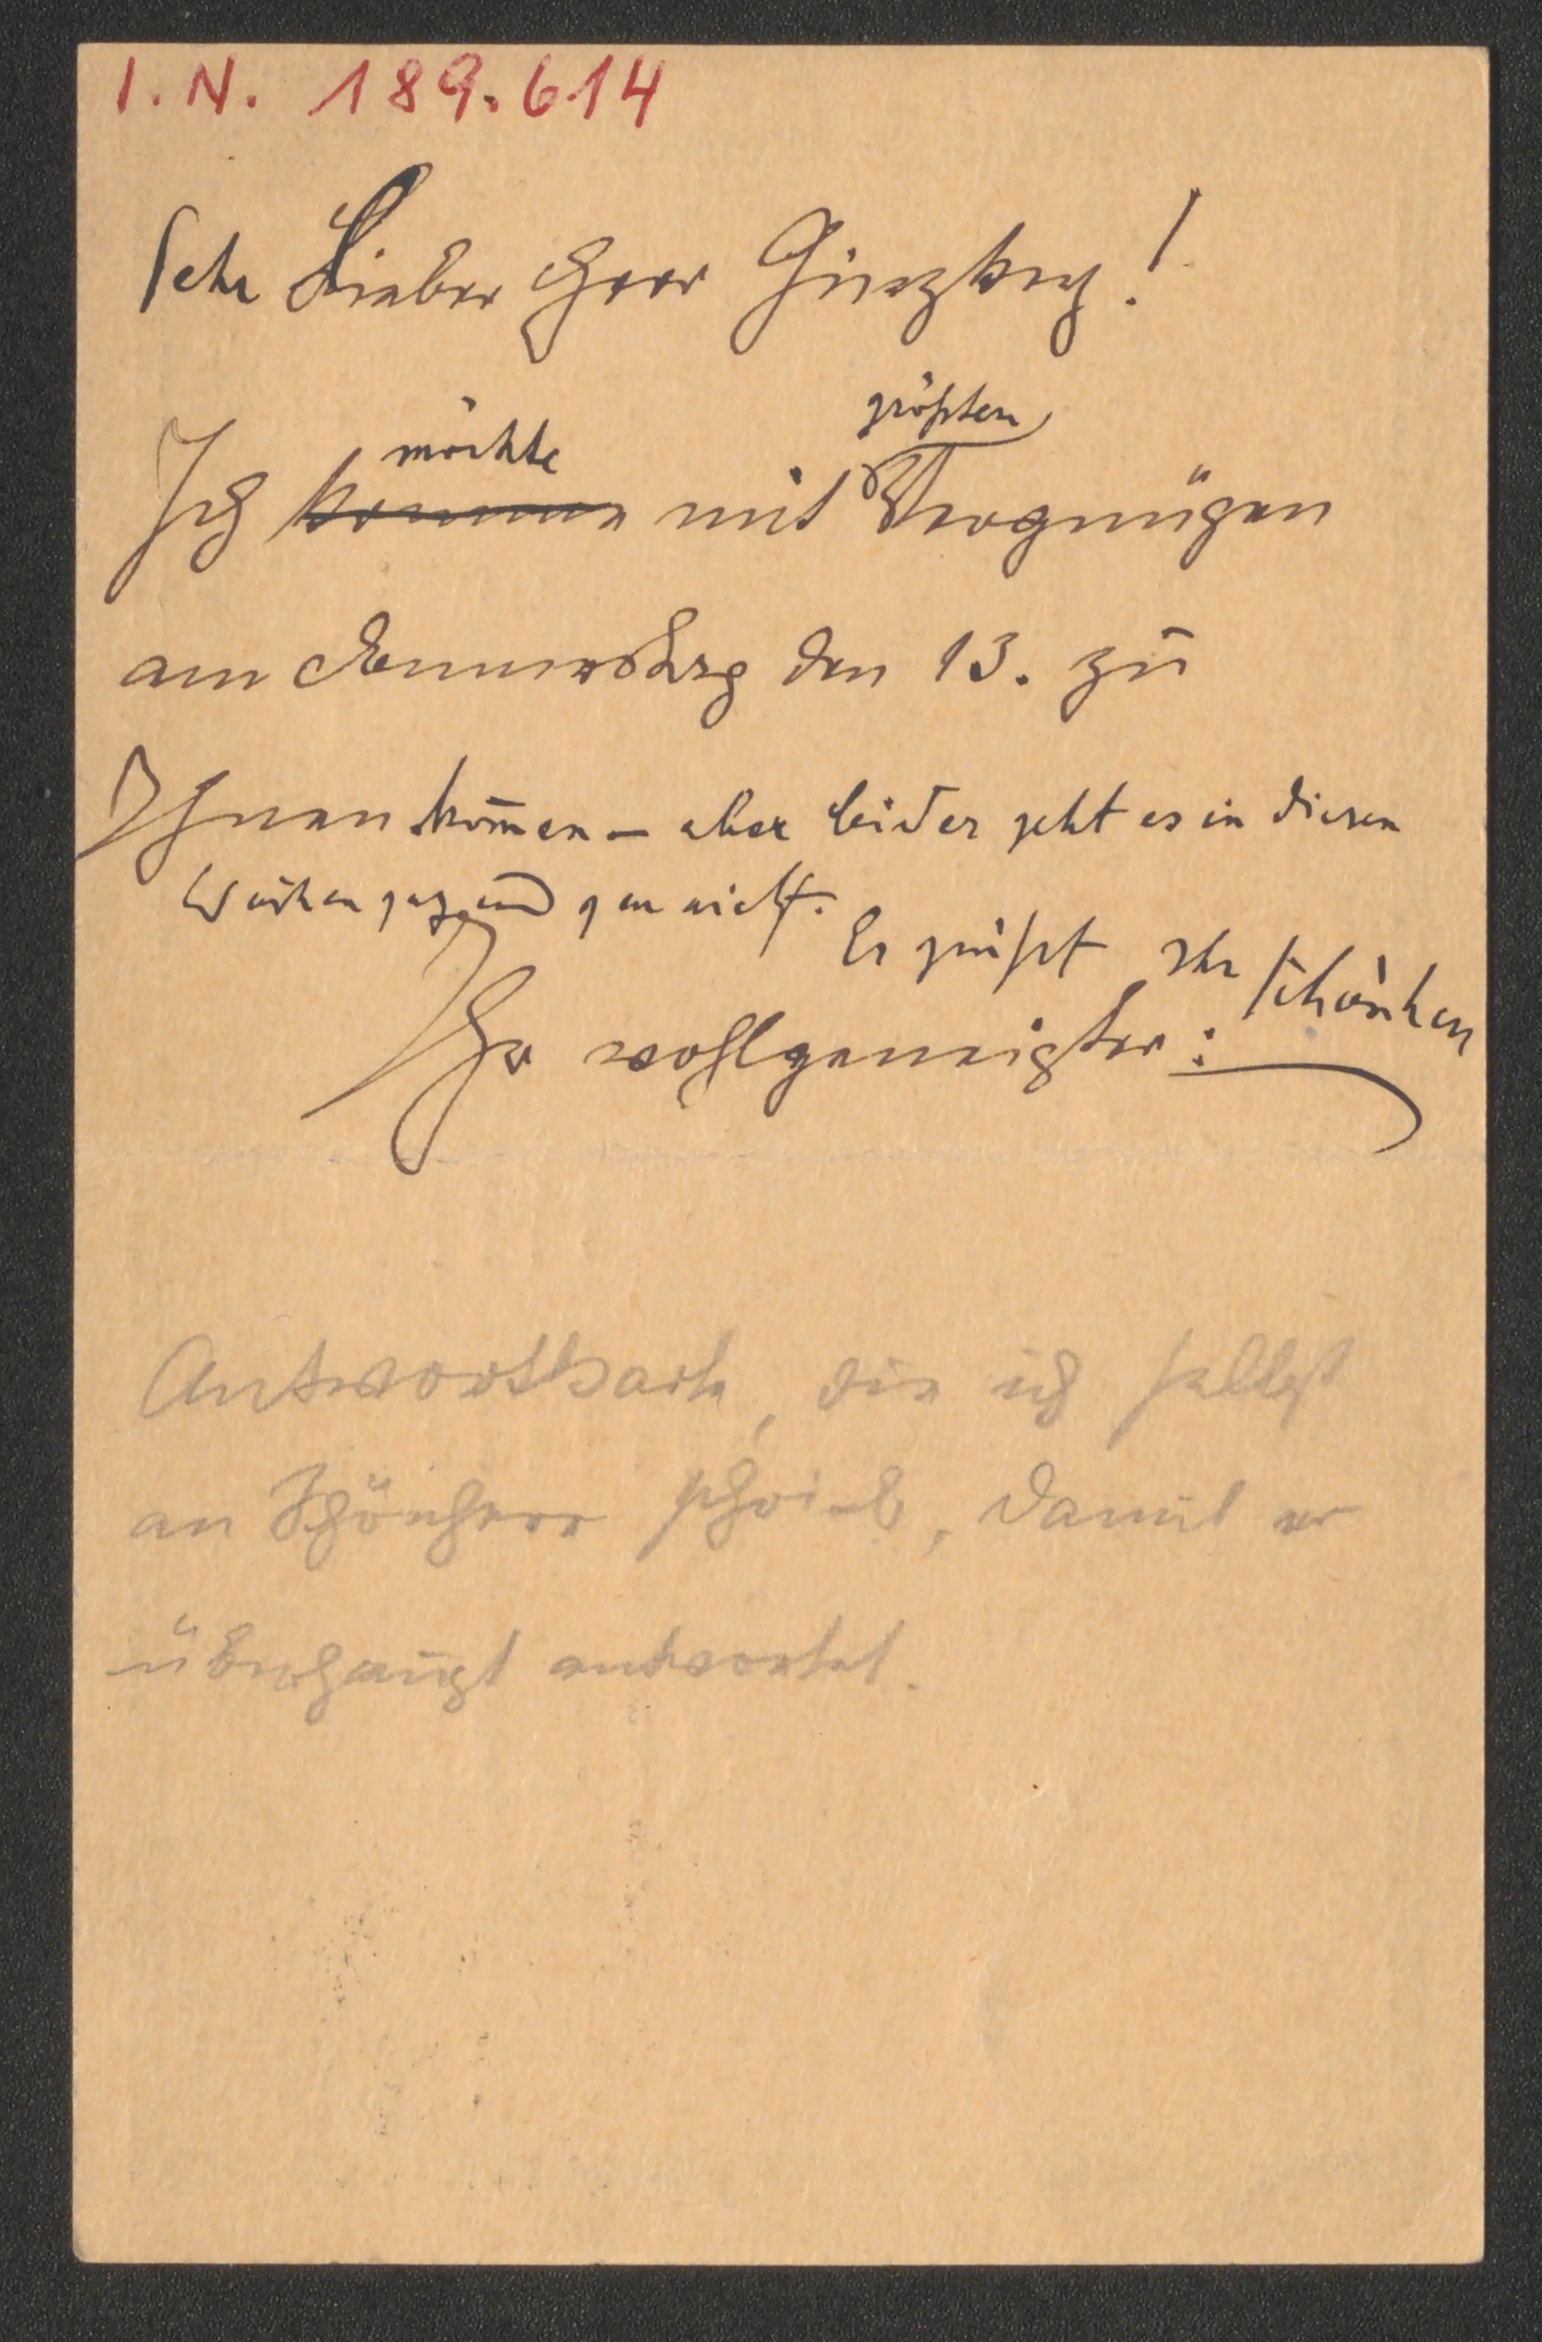 I. N. 189.614
Sehr Lieber Herr Ginzkey!
möchte größten
Ich komme mit Vergnügen
am Donnerstag den 13. zu
Ihnen kommen – aber leider geht es in diesen
Wochen ganz und gar nicht.
Es grüßt Ihr Schönherr
Ihr wohlgeneigter:
Antwortkarte, die ich selbst
an Schönherr schrieb, damit er
überhaupt antwortet.